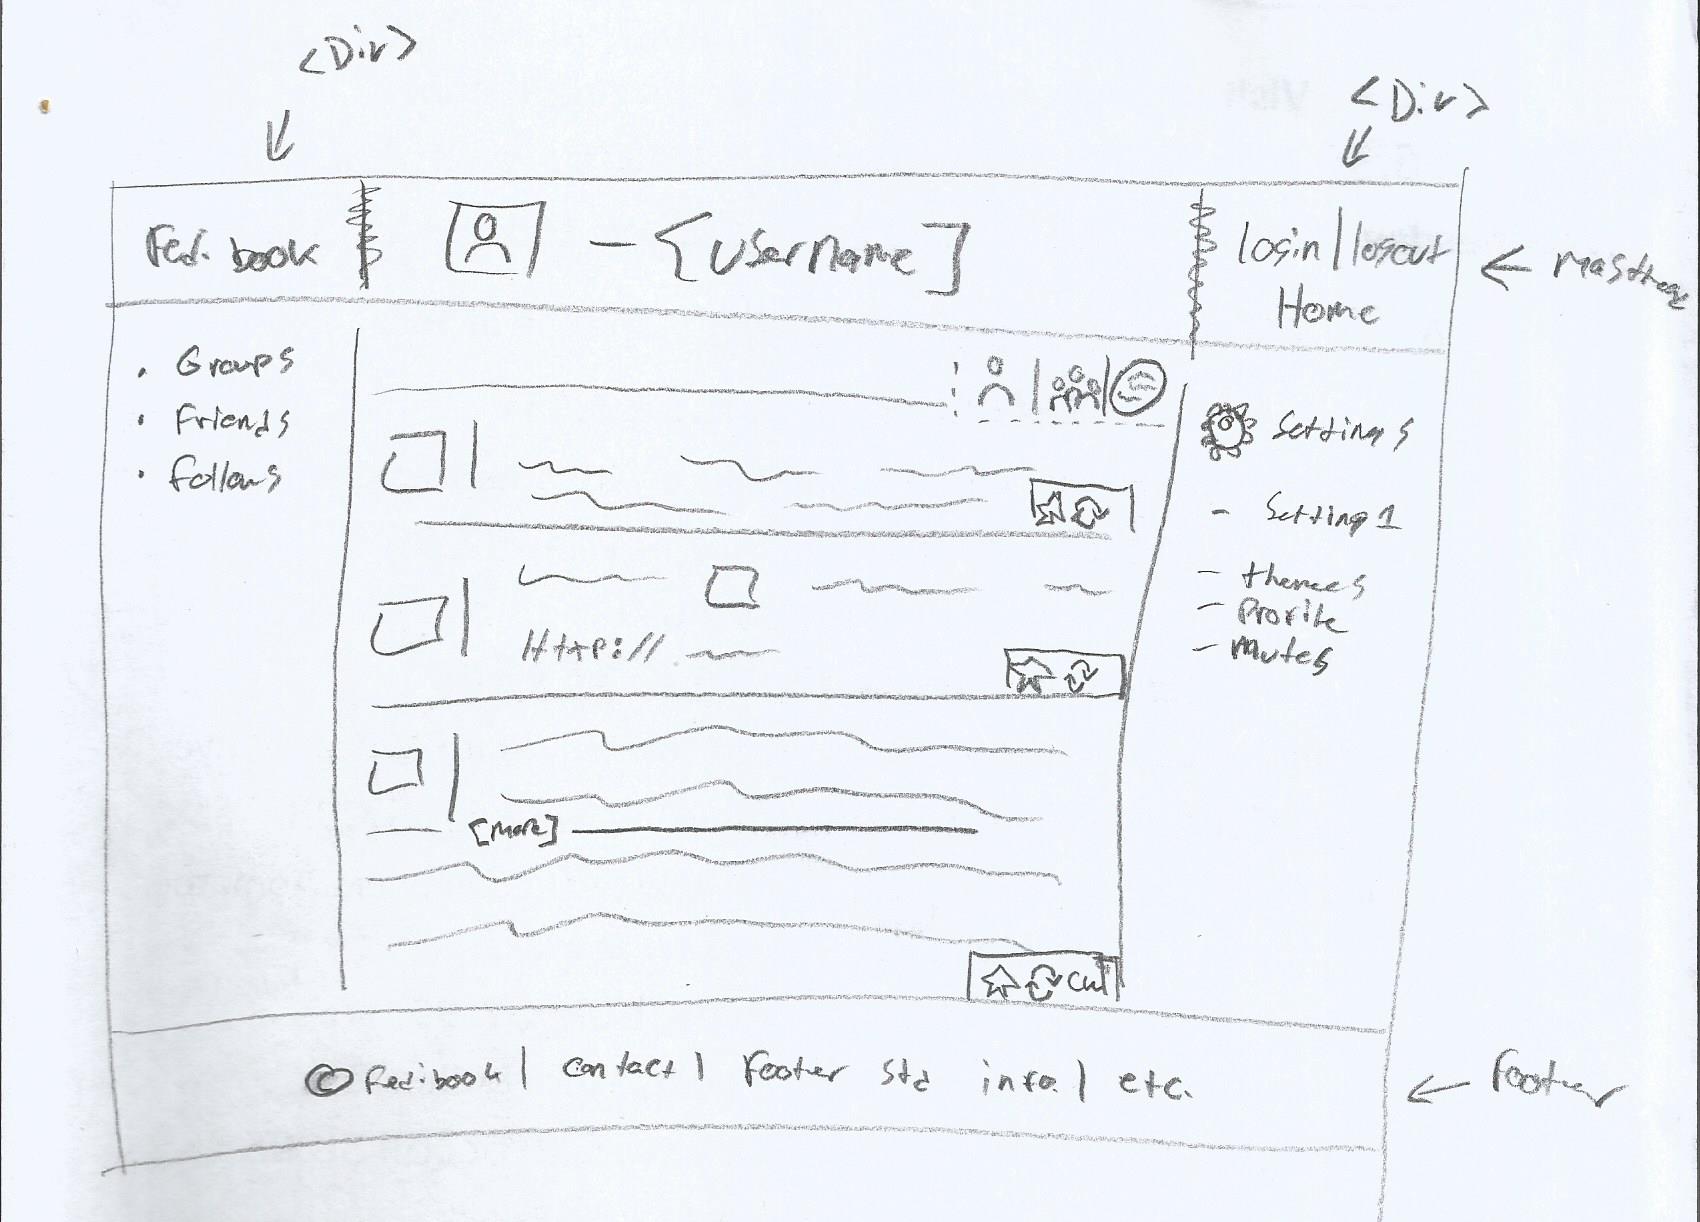 <Div>
<Div>
Fedibook
- {Username]
login|logout
Home
← Masthead
• Groups
• Friends
• Follows
Settings
- Setting 1
- themes
- Profile
- Mutes
HTTP://
[More]
CW
© Fedibook | contact | Footer Std info. | etc.
← Footer